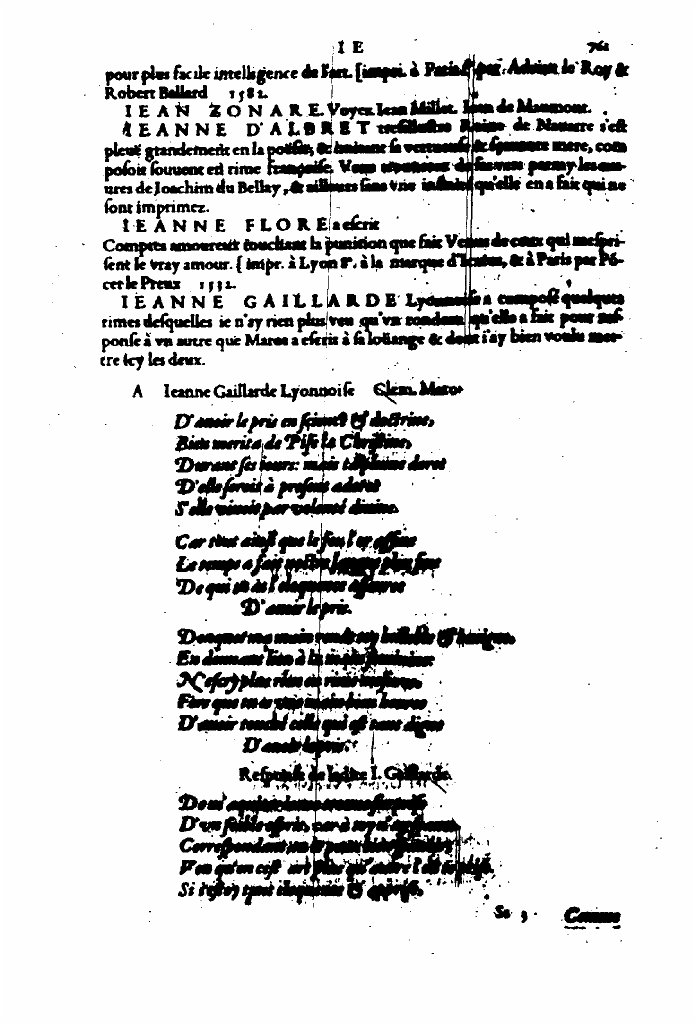 I E 761
pour plus facile intelligence de l'art. [impri. à Paris par Adrian le Roy &
Robert Ballard 1582.
IEAN ZONARE. Voyez Iean Millet. Iean de Maumont.
IEANNE D'ALBRET tresillustre Roine de Nauarre s'est
pleuë grandement en la poësie, & imitant sa vertueuse & sçauante mere, com
posoit souuent en rime françoise. Vous de ses vers parmy les œu-
ures de Ioachim du Bellay, & ailleurs sans vne infinité qu'elle en a fait qui ne
sont imprimez.
IEANNE FLORE a escrit
Comptes amoureux touchant la punition que fait Venus de ceux qui mespri-
sent le vray amour. [impr. à Lyon 8°. à la marque d'Icarus, & à Paris par Pō-
cet le Preux 1532.
IEANNE GAILLARDE Lyonnoise a composé quelques
rimes desquelles ie n'ay rien plus veu qu'vn rondeau qu'elle a fait pour res-
ponse à vn autre que Marot a escrit à sa loüange & dont i'ay bien voulu met-
tre icy les deux.
A Ieanne Gaillarde Lyonnoise Clem. Marot
D'auoir le pris en science & doctrine,
Bien merita de Pise la Christine,
Durant ses iours: mais ta plume doree
D'elle seroit à present adoree
S'elle viuoit par volonté diuine.
Car tout ainsi que le feu l'or affine
Le temps a fait nostre langue plus fine
De qui tu as l'eloquence asseuree
D'auoir le pris.
Donques ma main rends toy humble & benigne,
En donnant lieu à la main feminine:
N'escry plus rien en rime mesuree,
Fors que tu es vne main bien heuree
D'auoir touché celle qui est tant digne
D'auoir le pris.
Response de ladite I. Gaillarde.
De m'acquiter
D'vn foible esprit, car à toy
Correspondant
Veu qu'en cest art plus qu'autre l'on te prise,
Si fusse ie tant eloquente & apprise,
Comme